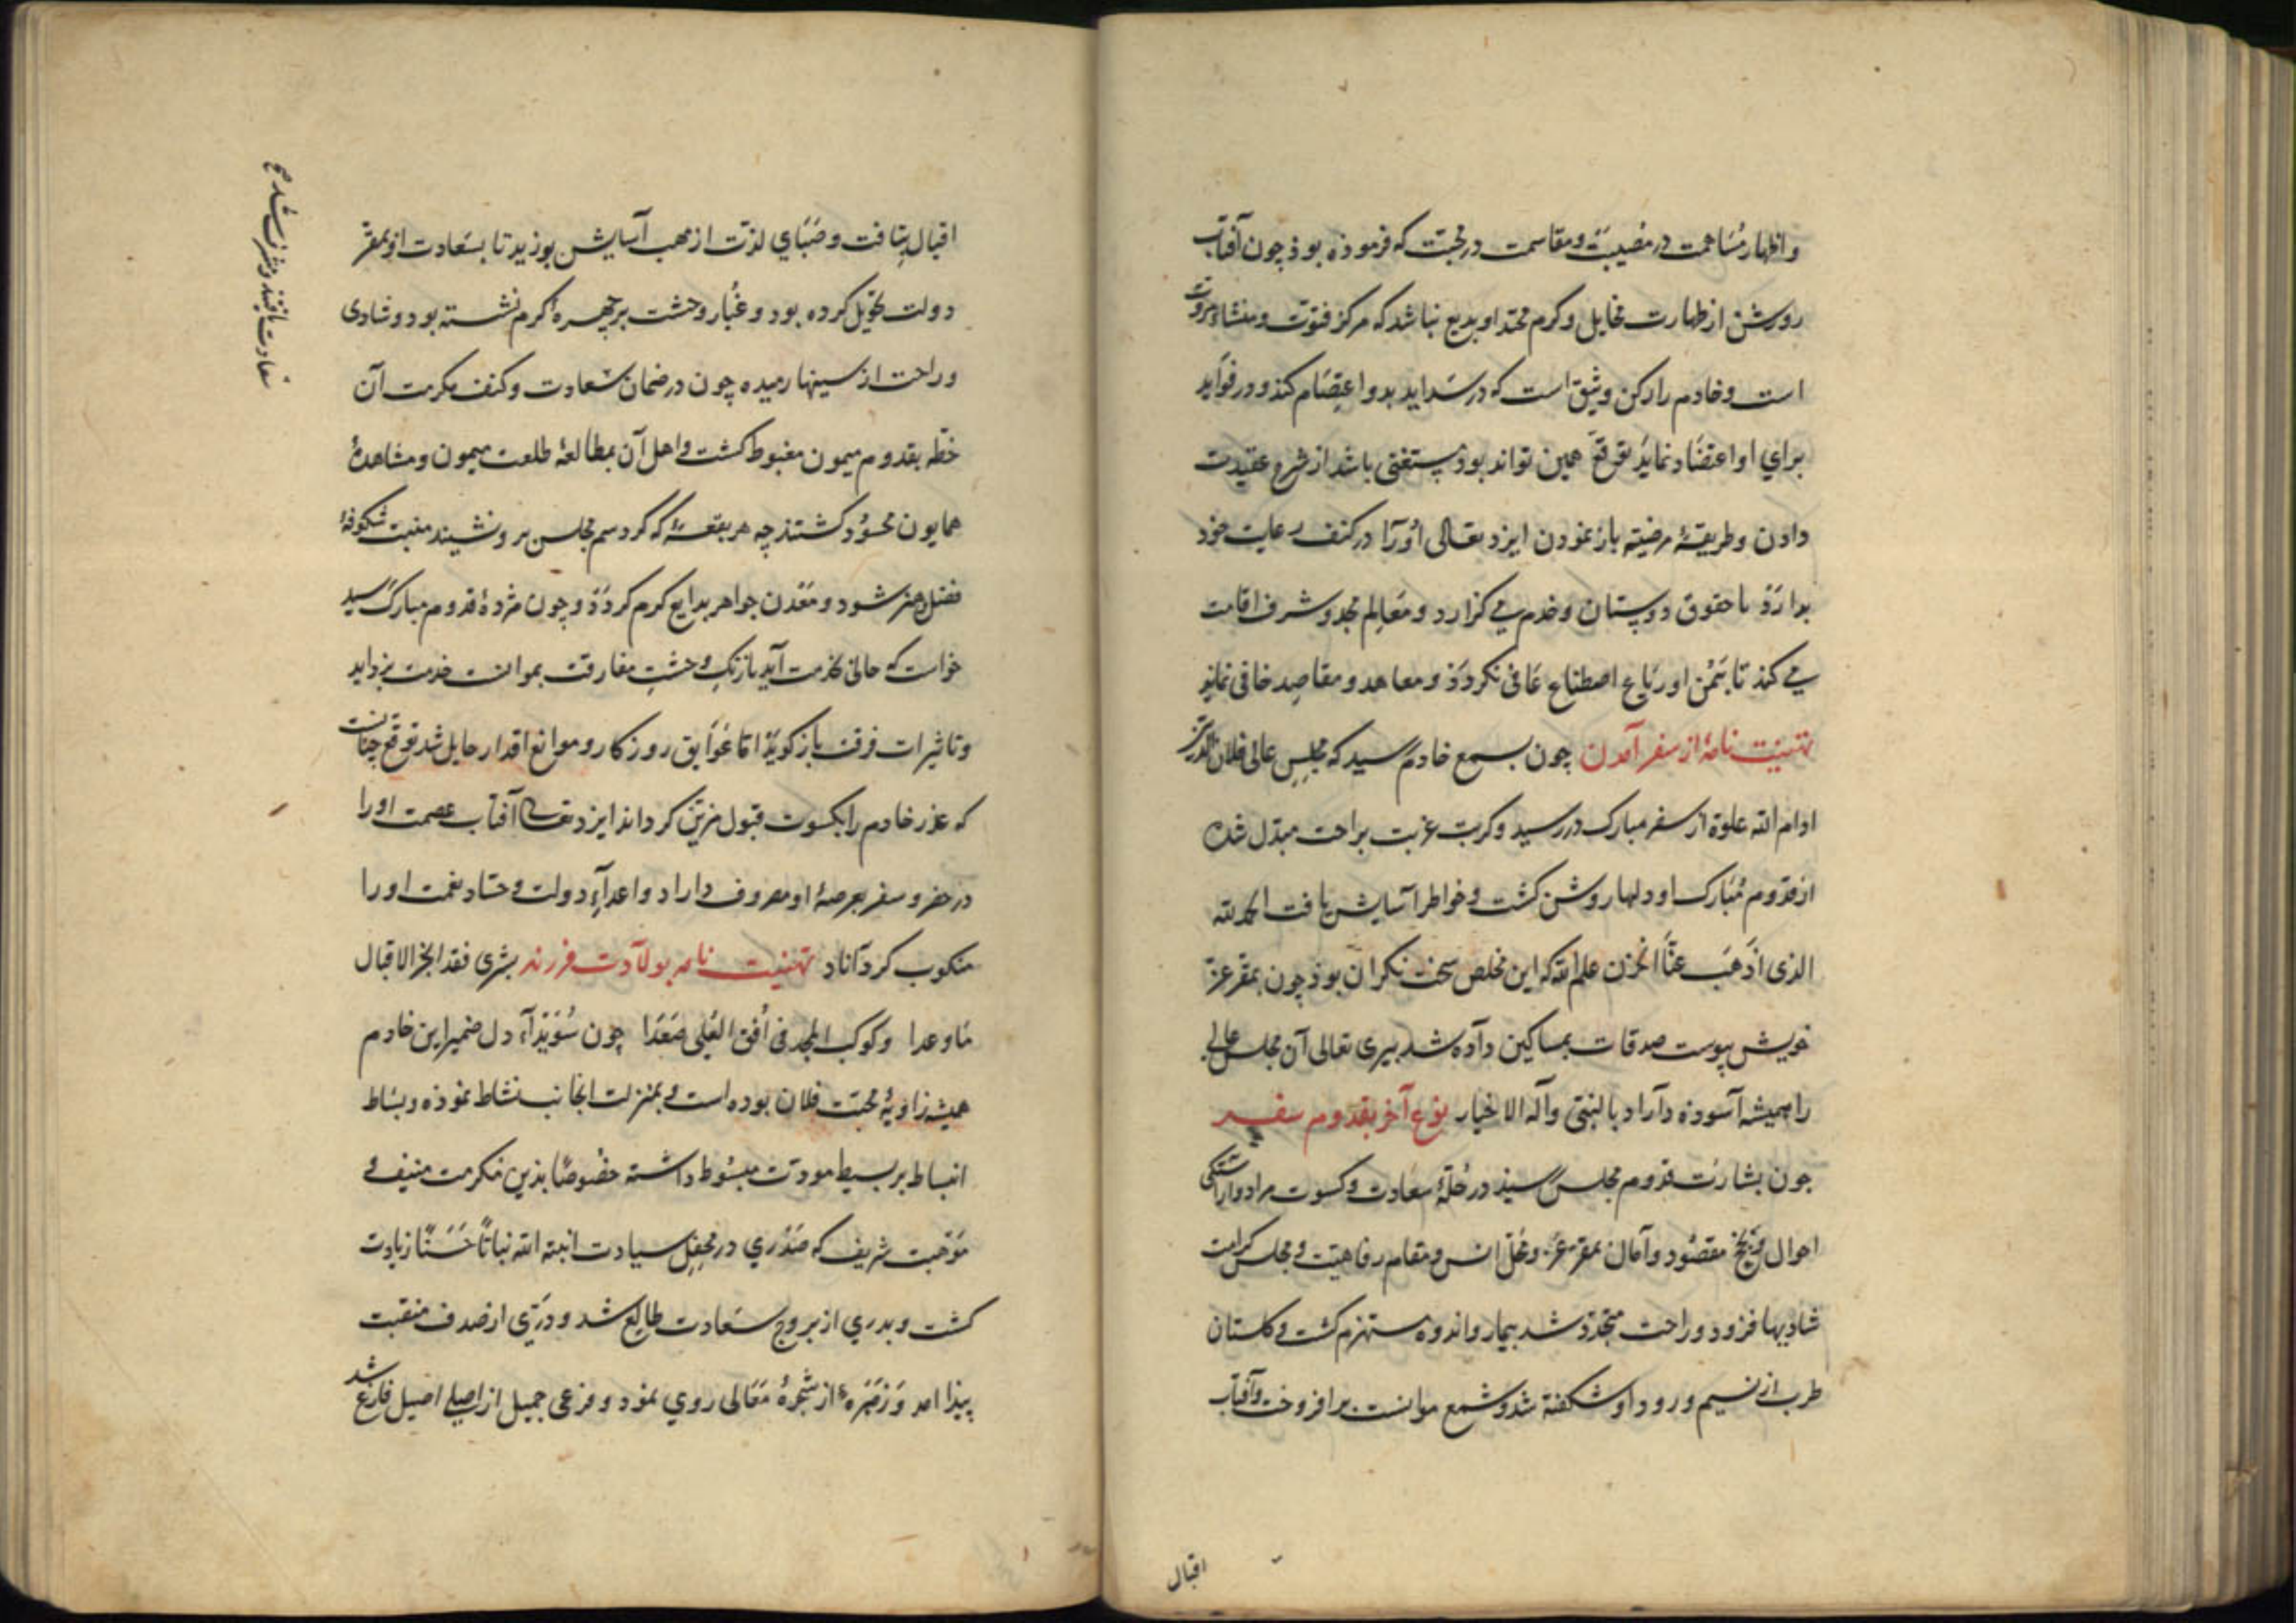 و اظهار مساهمت در مصیبت و مقاسمت در محبت که فرموذه بوذ چون آفتاب
روشن از طهارت مخایل و کرم محتد او بدیع نباشد که مرکز فتوت و منشاء مروت
است و خادم را رکن وثیق است که در شداید بدو اعتصام کند و در فواید
برای او اعتضاد نماید توقع همین تواند بوذ مستغنی باشد از شرح عقیدت
دادن و طریقهٔ مرضیه باز نمودن ایزد تعالی او را در کنف رعایت خود
بدارد تا حقوق دوستان و خدم می گزارد و معالم مجد و شرف اقامت
می کند تا بیمن او رباع اصطناع عافی نگردد و معاهد و مقاصد خافی نماند
تهنیت نامهٔ از سفر آمدن چون بسمع خادم رسید که مجلس عالی فلان الدین
ادام الله علوه از سفر مبارک در رسید و کربت غربت براحت مبدل شد
از قدوم مبارک او دلها روشن گشت و خواطر آسایش یافت الحمد لله
الذی اذهب عنا الحزن علم الله که این مخلص سخت نگران بوذ چون بمقر عز
خویش پیوست صدقات بمساکین داده شد تعالی آن مجلس عالی
را همیشه آسوده داراد بالنبی و آله الاخیار نوع آخر بقدوم سفر
چون بشارت قدوم مجلس رسید در حلهٔ سعادت و کسوت مراد و آراستگی
احوال و نجح مقصود و آمال بمقر عز و محل انس و مقام رفاهیت و مجلس کرامت
شادیها فزود و راحت متجدد شد تیمار و اندوه منهزم گشت و گلستان
طرب از نسیم ورود او شکفته شد و شمع موانست برافروخت و آفتاب
اقبال
اقبال بتافت و صبای لذت از مهب آسایش بوزید تا بسعادت او بمقر
دولت تحویل کرده بود و غبار وحشت بر چهرهٔ کرم نشسته بود و شادی
و راحت از سینها رمیده چون در ضمان سعادت و کنف مکرمت آن
خطه بقدوم میمون مغبوط گشت و اهل آن بمطالعهٔ طلعت میمون و مشاهدهٔ
همایون محسود گشتند چه هر بقعهٔ که گرد سم مجلس بر و نشیند منبت شکوفهٔ
فضل و هنر شود و معدن جواهر بدایع کرم گردد و چون مژدهٔ قدوم مبارک رسید
خواست که حالی بخدمت آید تا زنگ وحشت مفارقت بموانست خدمت بزداید
و تاثیرات فرقت باز گوید اما عوایق روزگار و موانع اقدار حایل شد توقع چنانست
که عذر خادم را بکسوت قبول مزین گرداند ایزد تعالی آفتاب عصمت او را
در حضر و سفر بعرصهٔ او مصروف داراد و اعداء دولت و حساد نعمت او را
منکوب گرداناد تهنیت نامه بولادت فرزند بشری فقد انجز الاقبال
ما وعدا و کوکب المجد فی افق العلی صعدا چون سویداء دل ضمیر این خادم
همیشه زاویهٔ محبت فلان بوده است و بمنزلت انجانب نشاط نموده و بساط
انبساط بر بسیط مودت مبسوط داشته خصوصا بذین مکرمت منیف و
موهبت شریف که صدری در محفل سیادت انبته الله نباتا حسنا زیادت
گشت و بدری از بروج سعادت طالع شد و دری از صدف منقبت
پیدا امد و زهره از شجرهٔ معالی روی نمود و فرعی جمیل از اصلی اصیل فارع شد
سعادت یافتند و مشرف شدند صح